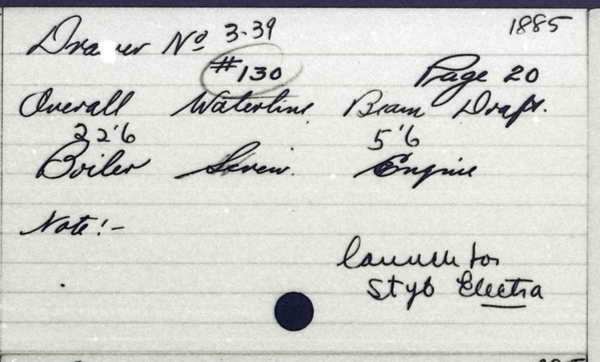 1885
Drawer Nº 3-39
#130
Page 20
Overall Waterline Beam Draft.
22'6 5'6
Boiler Screw. Engine
Note:-
Launch for
Styb Electra